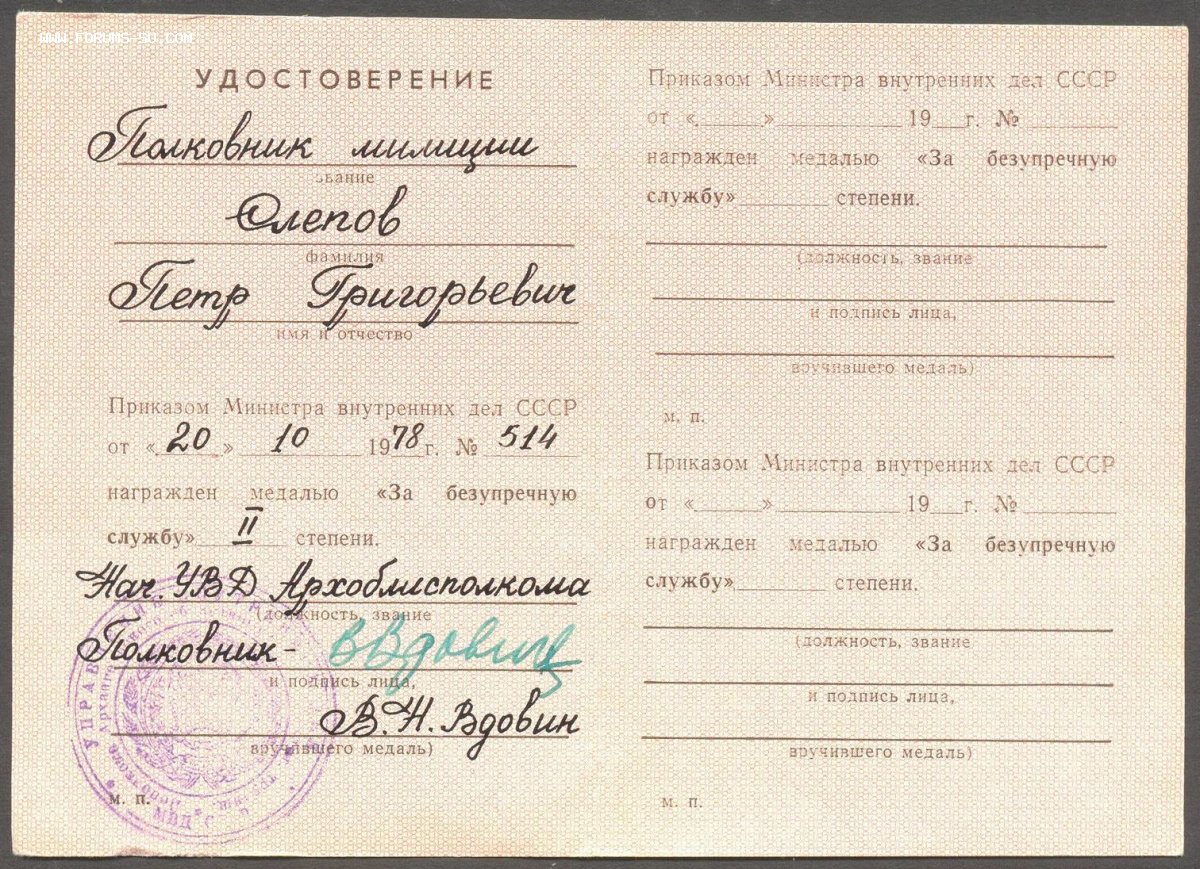 WWW.FORUMS-SU.COM
УДОСТОВЕРЕНИЕ
Полковник милиции
звание
Слепов
фамилия
Петр Григорьевич
имя и отчество
Приказом Министра внутренних дел СССР
от «20» 10 1978 г. № 514
награжден медалью «За безупречную
службу» II степени.
Нач. УВД Архоблисполкома
(должность, звание
Полковник - ВВдовин
и подпись лица,
В.Н. Вдовин
вручившего медаль)
м. п.
МВД СССР
Приказом Министра внутренних дел СССР
от «______» ____________ 19___г. № ________
награжден медалью «За безупречную
службу»________ степени.
(должность, звание
и подпись лица,
вручившего медаль)
м. п.
Приказом Министра внутренних дел СССР
от «______» ____________ 19___г. № ________
награжден медалью «За безупречную
службу»________ степени.
(должность, звание
и подпись лица,
вручившего медаль)
м. п.